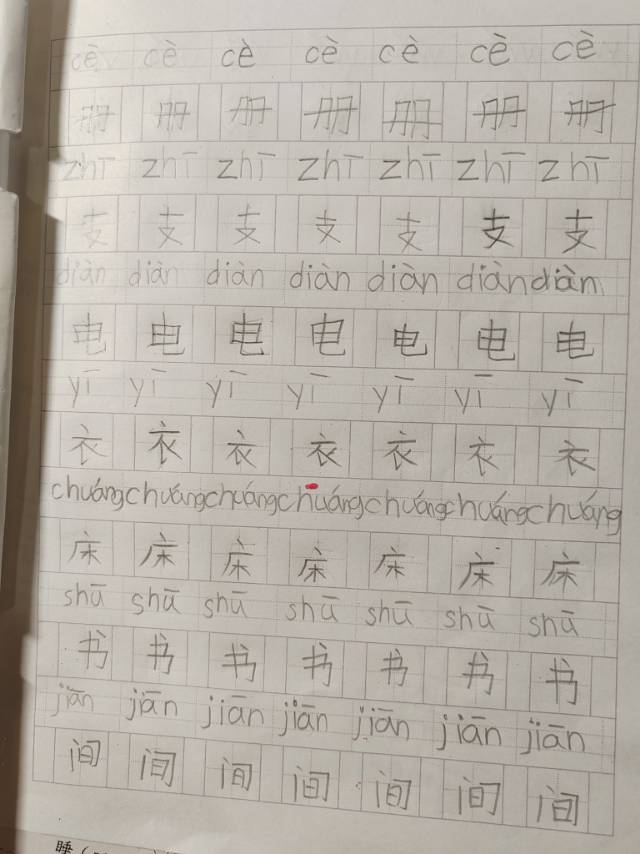 cè cè cè cè cè cè cè
册 册 册 册 册 册 册
zhī zhī zhī zhī zhī zhī zhī
支 支 支 支 支 支 支
diàn diàn diàn diàn diàn diàn diàn
电 电 电 电 电 电 电
yī yī yī yī yī yī yī
衣 衣 衣 衣 衣 衣 衣
chuáng chuáng chuáng chuáng chuáng chuáng chuáng
床 床 床 床 床 床 床
shū shū shū shū shū shū shū
书 书 书 书 书 书 书
jiān jiān jiān jiān jiān jiān jiān
间 间 间 间 间 间 间
睡（